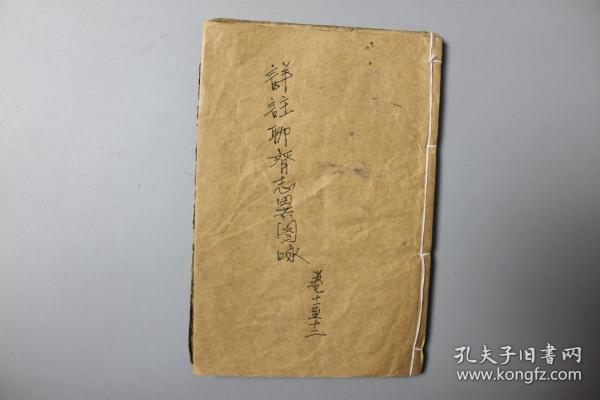 詳註聊齋志異图咏
卷十一至十二
孔夫子旧書网
www.kongfz.com